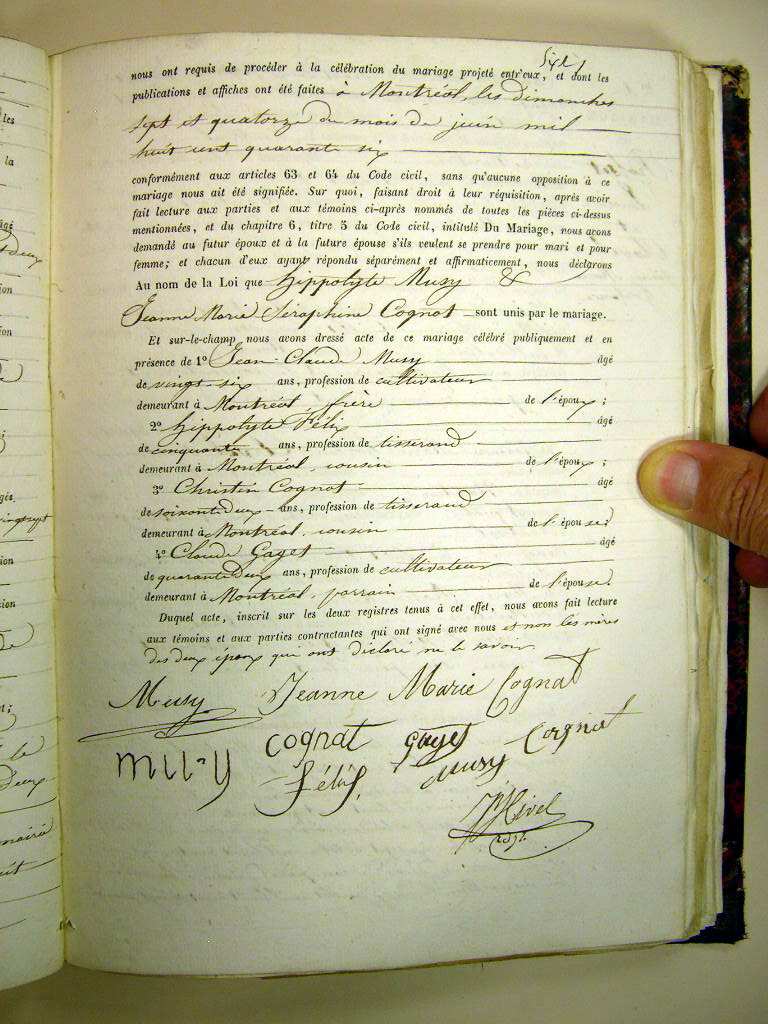 nous ont requis de procéder à la célébration du mariage projeté entr'eux, et dont les
publications et affiches ont été faites à Montréal, les dimanches
sept et quatorze du mois de juin mil
huit cent quarante six
conformément aux articles 63 et 64 du Code civil, sans qu'aucune opposition à ce
mariage nous ait été signifiée. Sur quoi, faisant droit à leur réquisition, après avoir
fait lecture aux parties et aux témoins ci-après nommés de toutes les pièces ci-dessus
mentionnées, et du chapitre 6, titre 5 du Code civil, intitulé Du Mariage, nous avons
demandé au futur époux et à la future épouse s'ils veulent se prendre pour mari et pour
femme; et chacun d'eux ayant répondu séparément et affirmaticement, nous déclarons
Au nom de la Loi que Hippolyte Musy &
Jeanne Marie Séraphine Cognat — sont unis par le mariage.
Et sur-le-champ nous avons dressé acte de ce mariage célébré publiquement et en
présence de 1° Jean-Claude Musy âgé
de vingt-six ans, profession de cultivateur
demeurant à Montréal, frère de l'époux;
2° Hippolyte Félix âgé
de cinquante ans, profession de tisserand
demeurant à Montréal, cousin de l'époux;
3° Christin Cognat âgé
de soixante deux ans, profession de tisserand
demeurant à Montréal, cousin de l'épouse;
4° Claude Gaget âgé
de quarante deux ans, profession de cultivateur
demeurant à Montréal, parrain de l'épouse.
Duquel acte, inscrit sur les deux registres tenus à cet effet, nous avons fait lecture
aux témoins et aux parties contractantes qui ont signé avec nous et non les mères
des deux époux qui ont déclaré ne le savoir.
Musy Jeanne Marie Cognat
musy cognat Gaget Cognat
félix musy